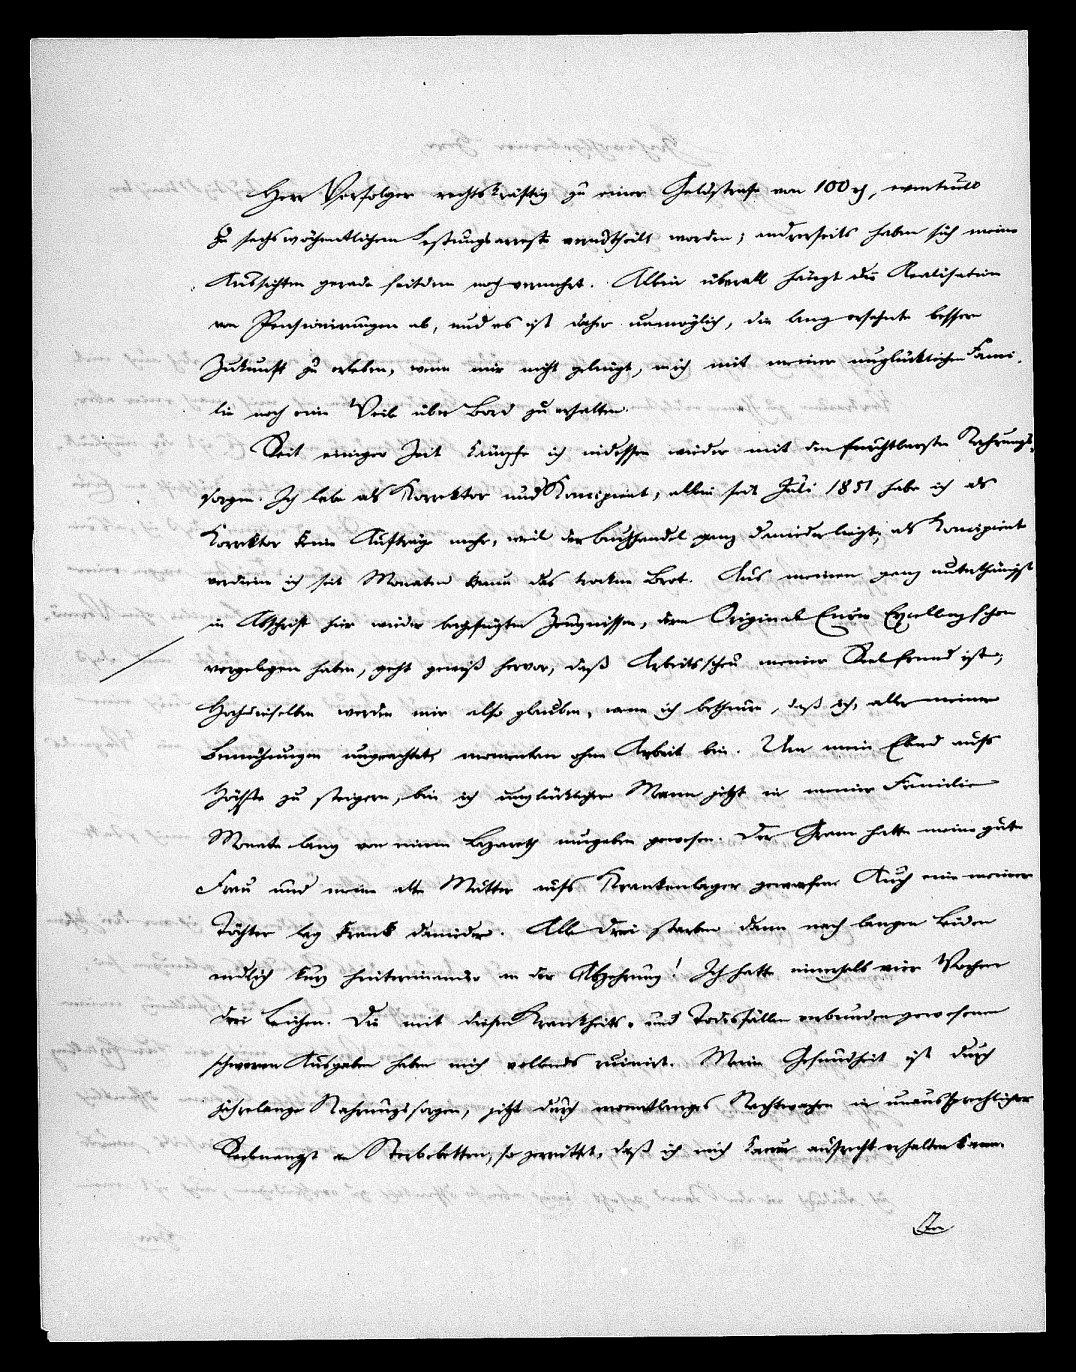 Herr Verfolger rechtskräftig zu einer Geldstrafe von 100 rl, eventuell
zu sechswöchentlichem Festungsarrest verurtheilt worden; andrerseits haben sich meine
Aussichten gerade seitdem noch vermehrt. Allein überall hängt die Realisation
von Pensionirungen ab, und es ist daher unmöglich, die lang ersehnte bessere
Zukunft zu erleben, wenn mir nicht gelingt, mich mit meiner unglücklichen Fami-
lie noch eine Weile über Bord zu erhalten.
Seit einiger Zeit kämpfe ich indessen wieder mit den furchtbarsten Nahrungs-
sorgen. Ich lebe als Korrektor und Koncipient, allein seit Juli 1851 habe ich als
Korrektor keine Aufträge mehr, weil der Buchhandel ganz daniederliegt; als Koncipient
verdiene ich seit Monaten kaum das trockne Brot. Aus meinen ganz unterthänigst
in Abschrift hier wieder beigefügten Zeugnissen, deren Original Euer Exzellenz schon
vorgelegen haben, geht gewiß hervor, daß Arbeitsscheu meiner Seele fremd ist;
Hochdieselben werden mir also glauben, wenn ich betheure, daß ich, aller meiner
Bemühungen ungeachtet, momentan ohne Arbeit bin. Um mein Elend aufs
Höchste zu steigern, bin ich unglücklicher Mann jetzt in meiner Familie
Monate lang von einem Lazareth umgeben gewesen. Der Gram hatte meine gute
Frau und meine alte Mutter aufs Krankenlager geworfen. Auch eine meiner
Töchter lag krank danieder. Alle drei starben dann nach langen Leiden
endlich kurz hintereinander an der Abzehrung! Ich hatte innerhalb vier Wochen
drei Leichen. Die mit diesen Krankheits- und Todesfällen verbunden gewesenen
schweren Ausgaben haben mich vollends ruinirt. Meine Gesundheit ist durch
jahrelange Nahrungssorgen, jetzt durch monatlanges Nachtwachen in unaussprechlicher
Seelenangst an Sterbebetten, so zerrüttet, daß ich mich kaum aufrecht erhalten kann.